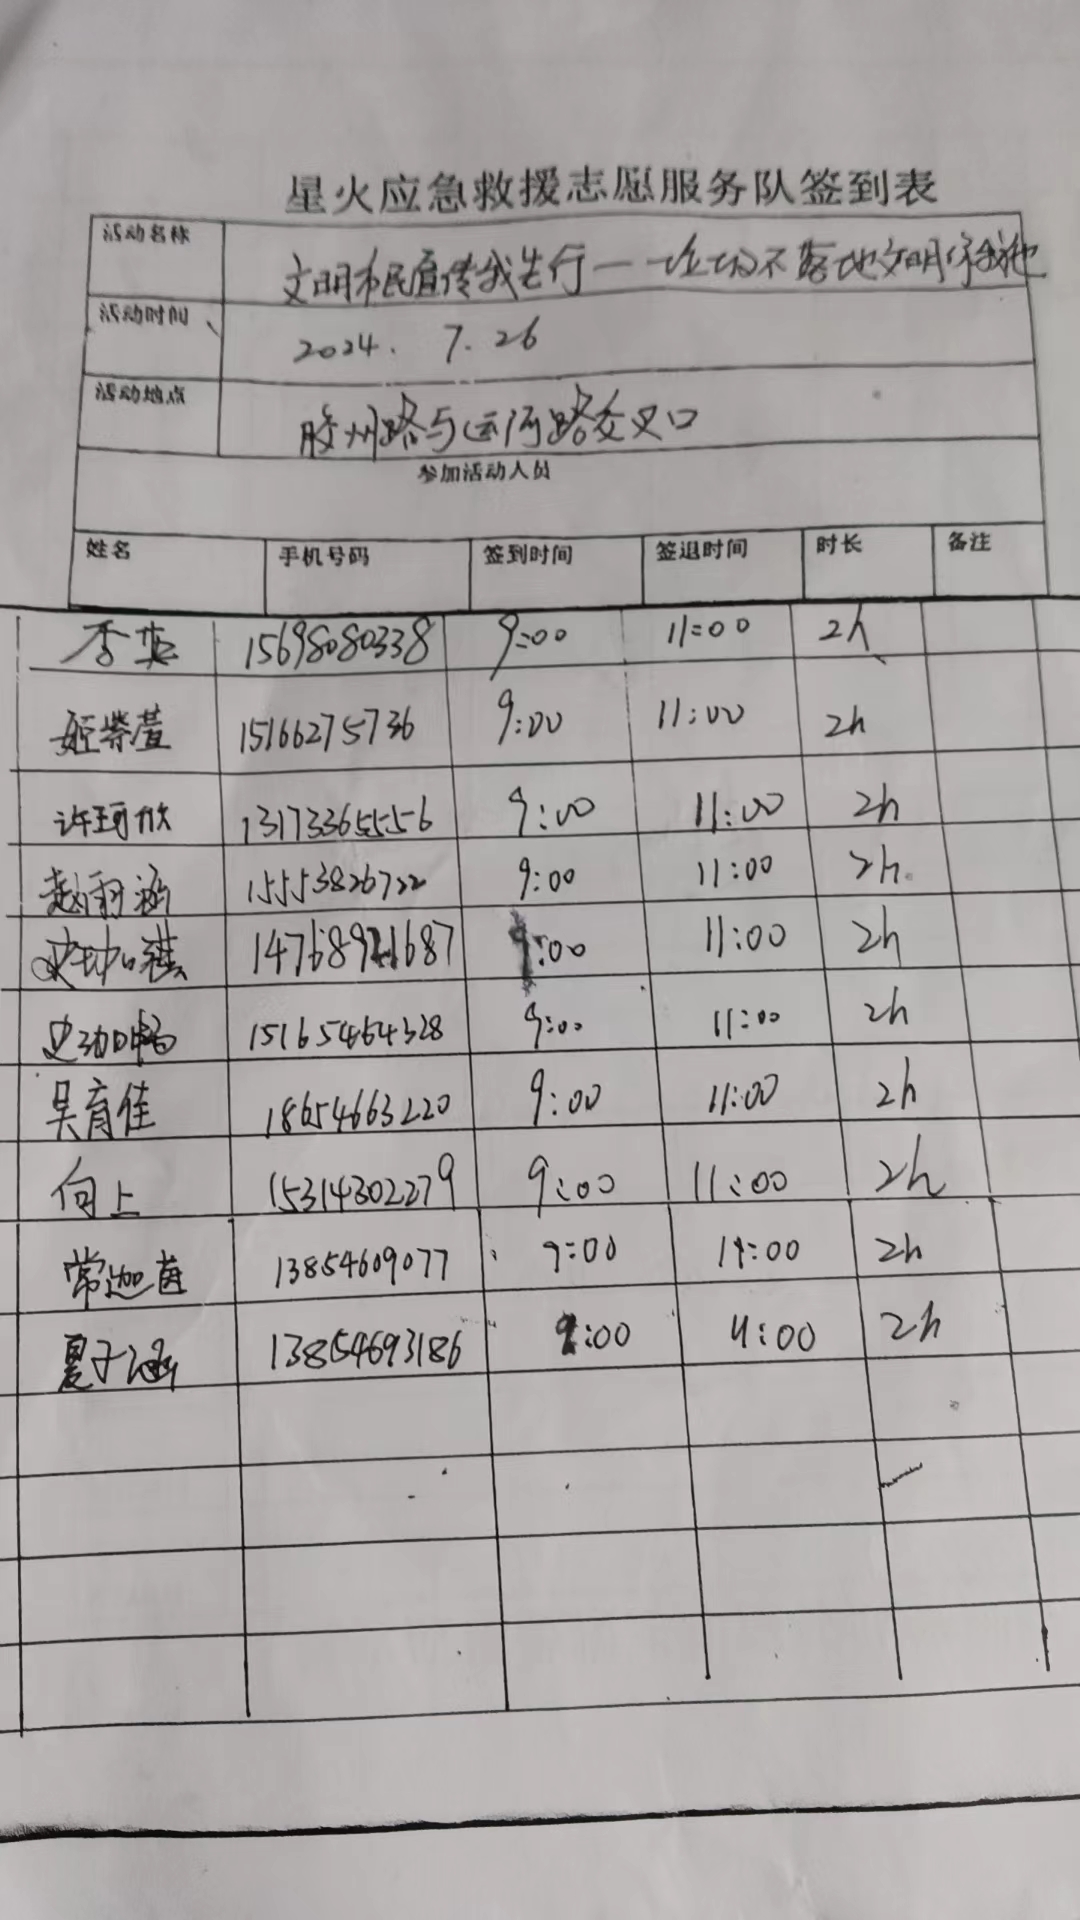 星火应急救援志愿服务队签到表
活动名称 文明市民宣传我先行——垃圾不落地文明
活动时间 2024. 7. 26
活动地点 胶州路与运河路交叉口
参加活动人员
姓名 手机号码 签到时间 签退时间 时长 备注
李英 15698080338 9:00 11:00 2h
姬紫萱 15166275736 9:00 11:00 2h
许珂欣 13173365556 9:00 11:00 2h
赵羽涵 15553826722 9:00 11:00 2h
史珈祺 9:00 11:00 2h
史珈畅 15165464328 9:00 11:00 2h
吴育佳 18654663220 9:00 11:00 2h
向上 15314302279 9:00 11:00 2h
常迦茵 13854609077 9:00 11:00 2h
夏子涵 13854693186 9:00 11:00 2h